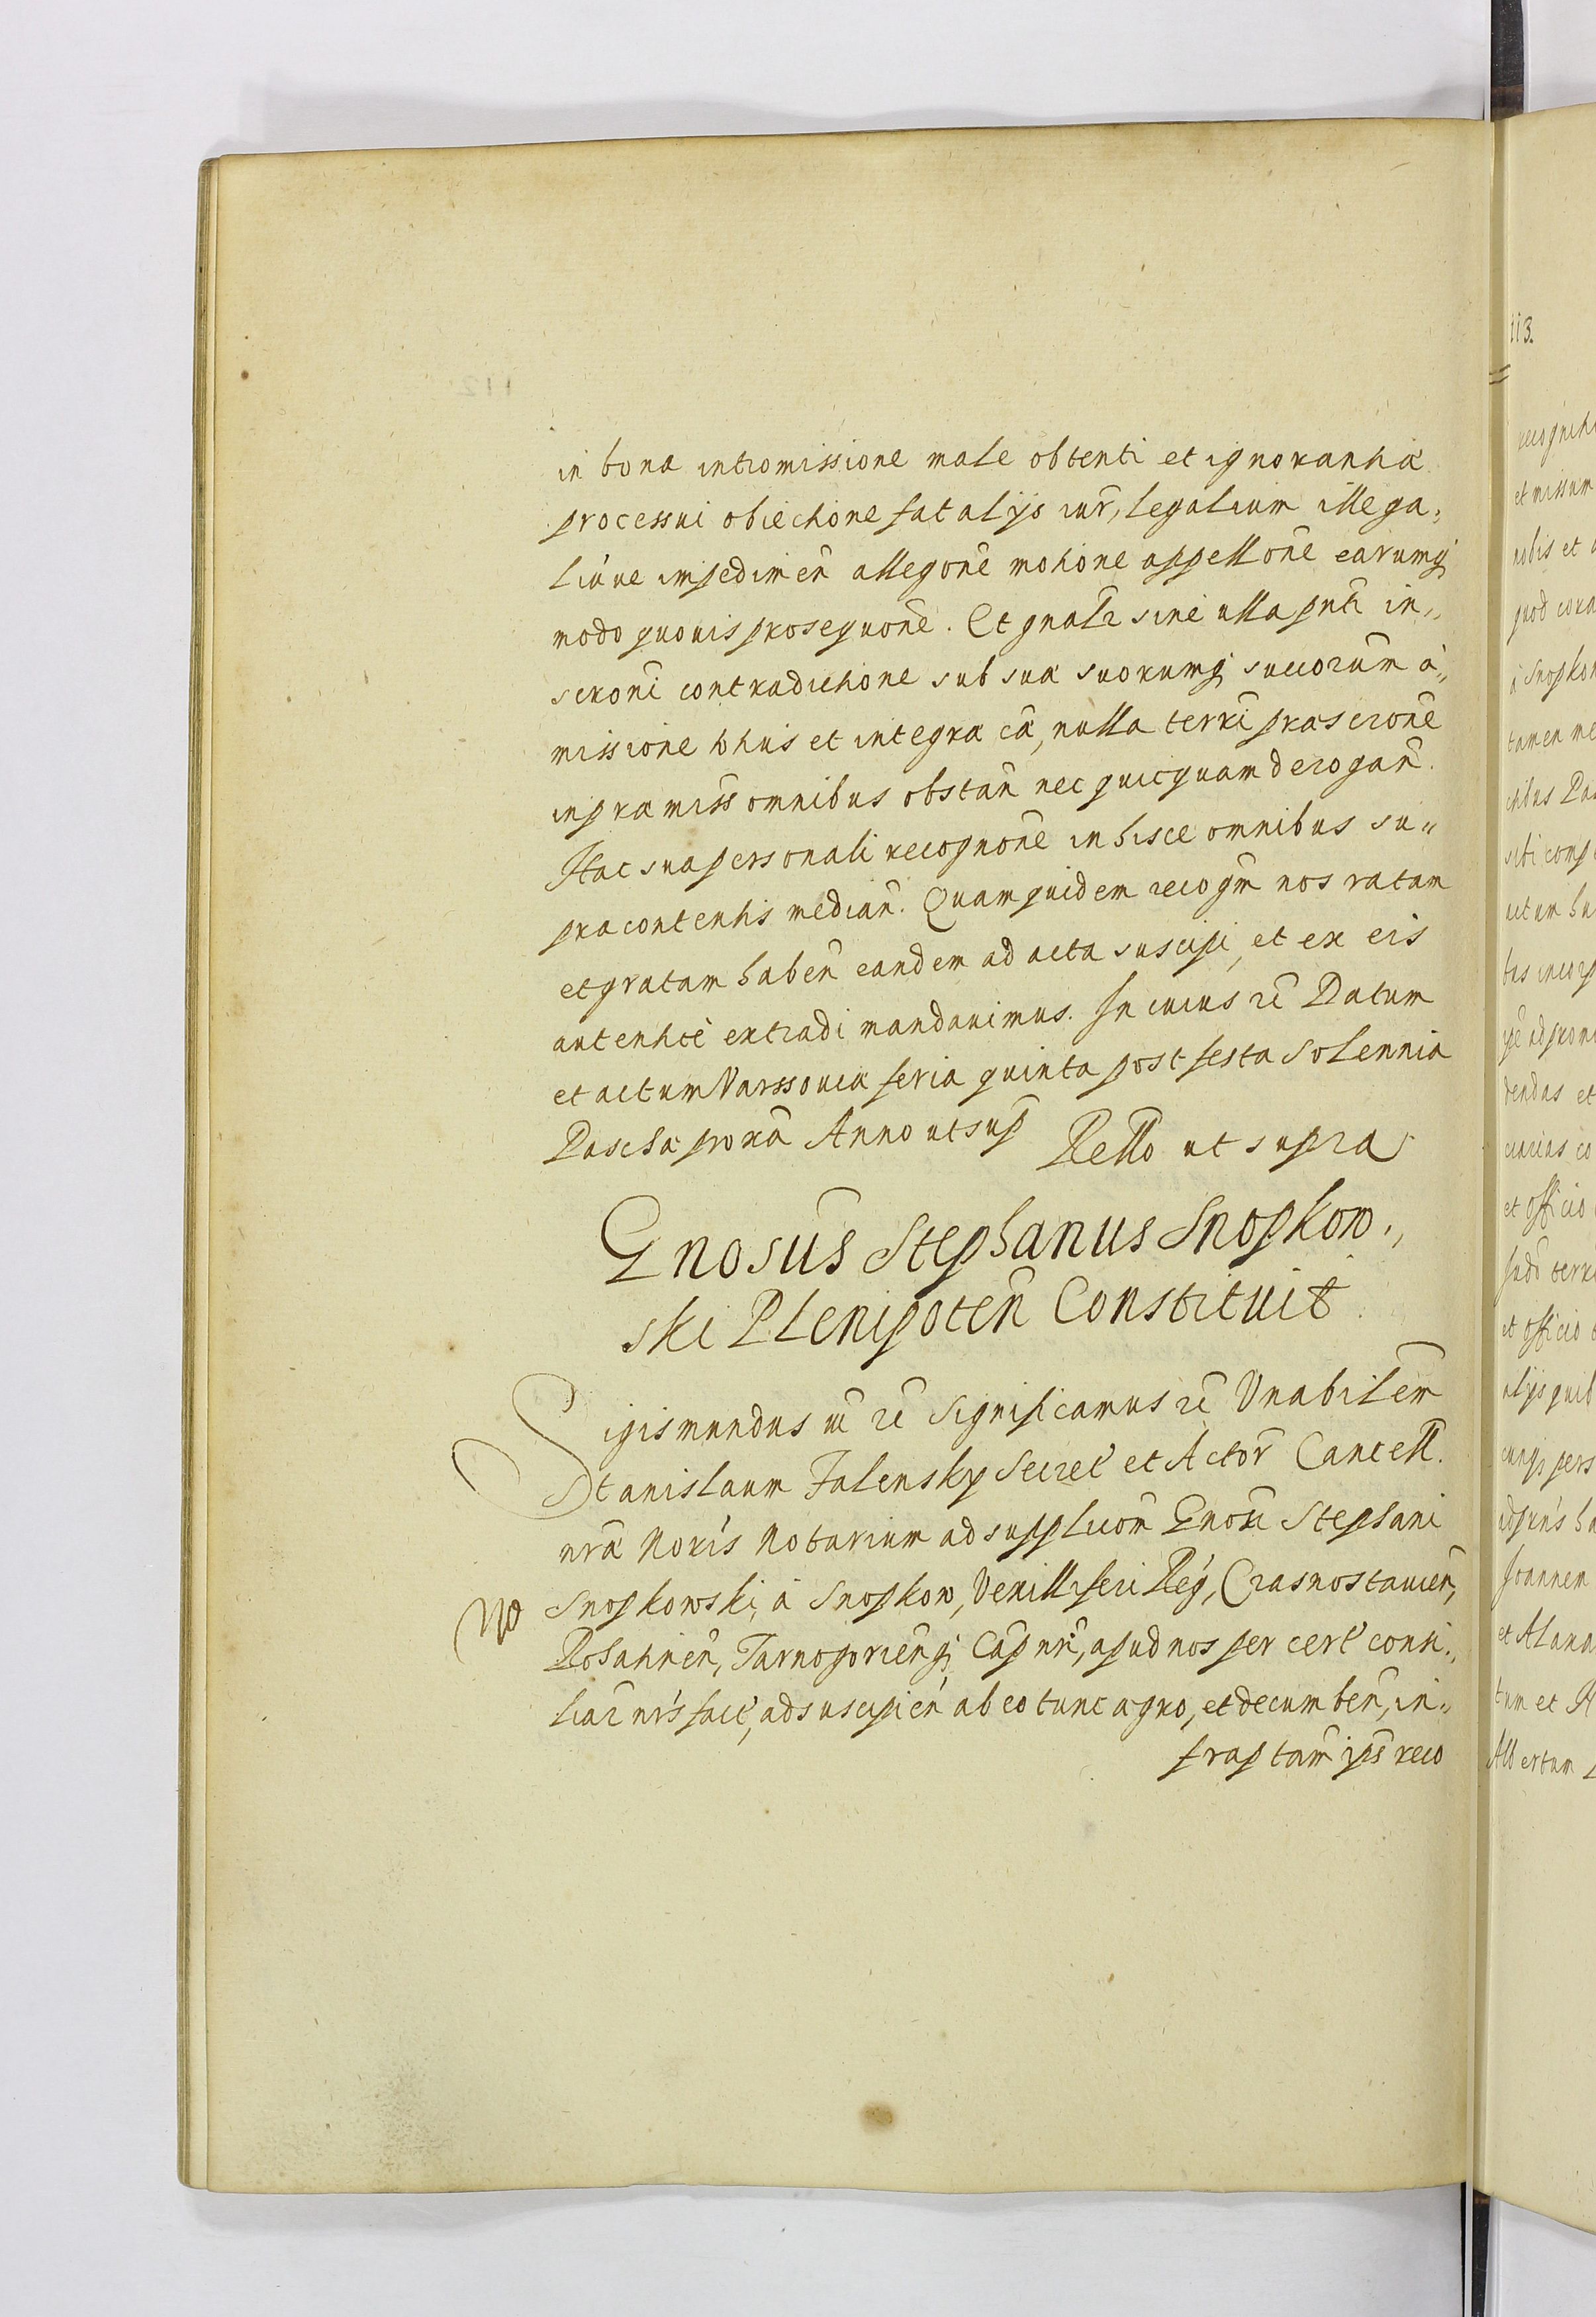 in bona intromissione male obtenti et ignorantia
processui obiectione fatalijs iur, legalium illega,
liu ue impedimen allegone motione appellone earumq
modo quouis prosequone. Et gnalr sine ulla pnti in,,
scroni contradictione sub sua suorumq succorum a,,
missione lrtius et integra ca, nulla terri prascrone
in pramiss omnibus obstan nec quicquam derogan.
Hac sua personali recognone in hisce omnibus su"
pra contentis median. Quam quidem recogm nos ratam
et gratam haben eandem ad acta suscipi, et ex eis
autentice extradi mandauimus. In cuius re Datum
et actum Varssouia feria quinta post festa Solennia
Pascha proxa Anno ut sup Rello ut supra
Gnosus Stephanus Snopkow,
ski Plenipoten Constituit
Sigismundus ut re Significamus re Vnabilem
Stanislaum Falensky Secret et Actor Cancell.
nra Noris Notarium ad supplicom Gnosi Stephani
Snopkowski, a Snopkow, Vexilliferi Reg, Crasnostauien,
No
Rohatinen, Tarnogorienq Cap nri, apud nos per cert consi,,
liar nrs fact, ad suscipien ab eo tunc agro, et decumben, in"
fraptam ips reco
113.
et missum
nobis et
quod cora
a Snopkow
tamen me
sibi comp
dendas et
et officio
et officio
alijs quib
Joannem
et Alana
tum et A
Albertum